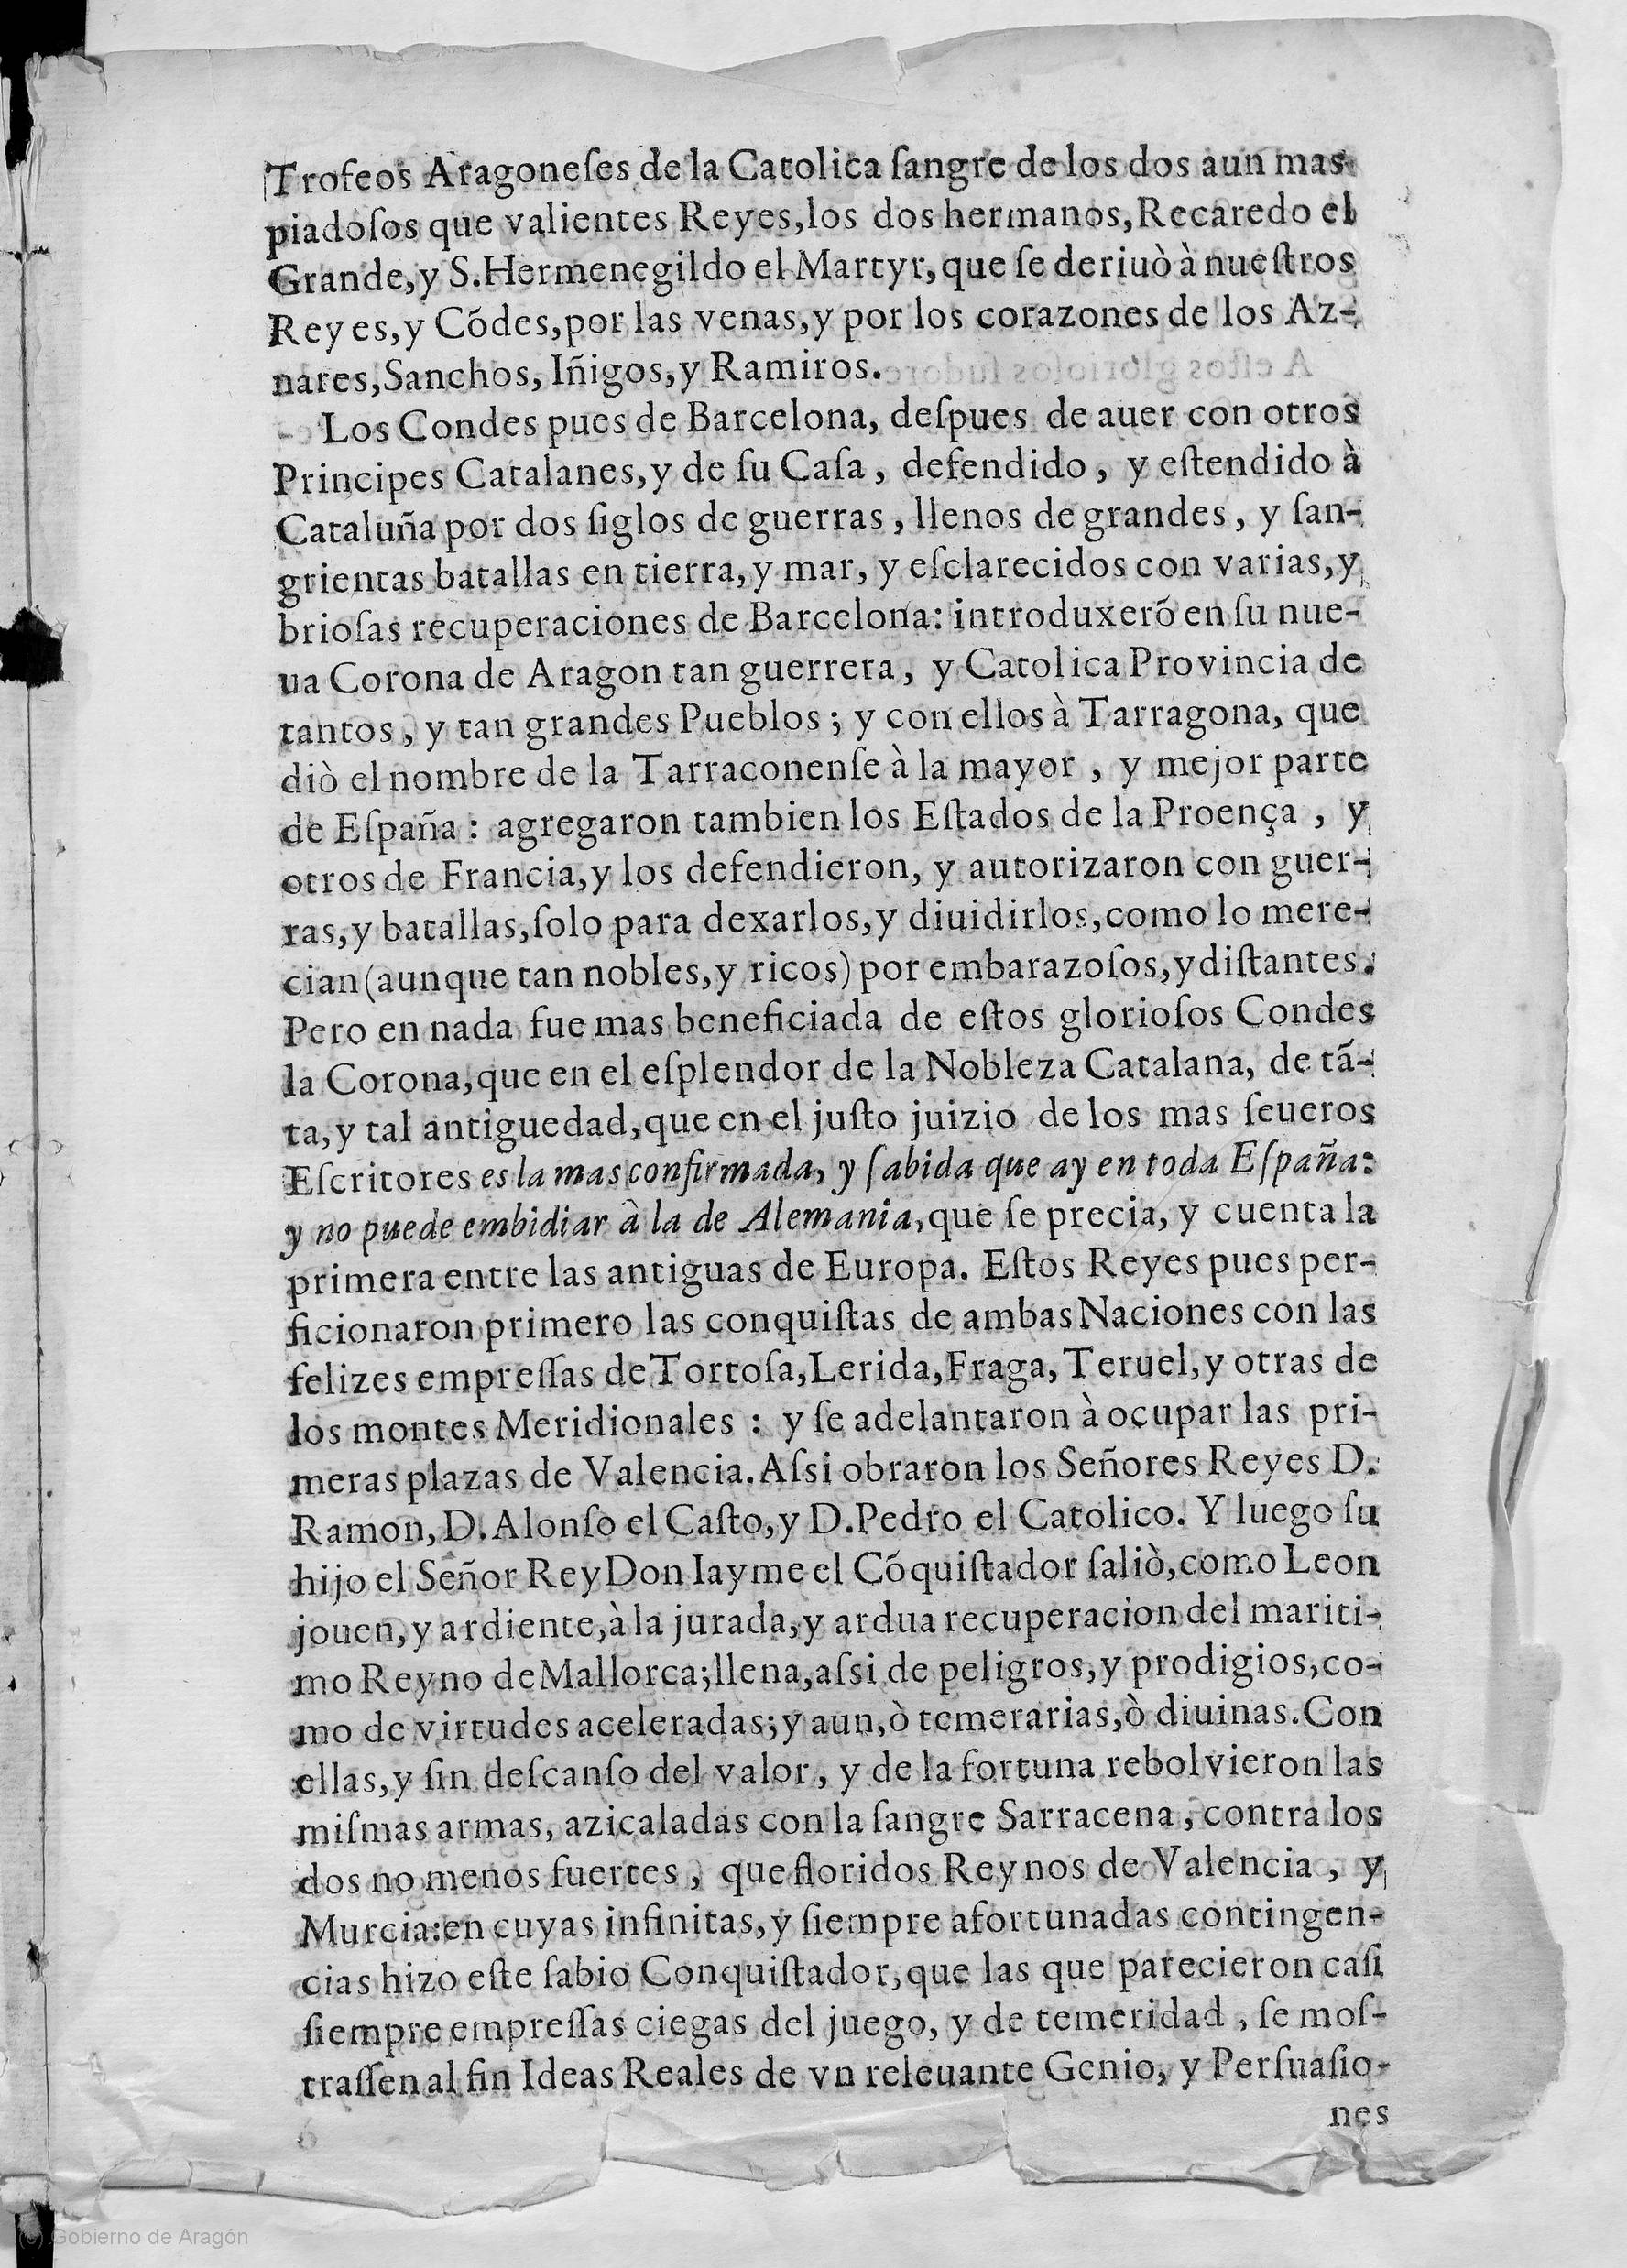 Trofeos Aragoneſes de la Catolica ſangre de los dos aun mas
piadoſos que valientes Reyes,los dos hermanos,Recaredo el
Grande,y S.Hermenegildo el Martyr,que ſe deriuò à nueſtros
Reyes,y Cõdes,por las venas,y por los corazones de los Az-
nares,Sanchos, Iñigos,y Ramiros.
Los Condes pues de Barcelona, deſpues de auer con otros
Principes Catalanes,y de ſu Caſa, defendido, y eſtendido à
Cataluña por dos ſiglos de guerras, llenos de grandes, y ſan-
grientas batallas en tierra,y mar, y eſclarecidos con varias,y
brioſas recuperaciones de Barcelona: introduxerõ en ſu nue-
ua Corona de Aragon tan guerrera, y Catolica Provincia de
tantos, y tan grandes Pueblos; y con ellos à Tarragona, que
diò el nombre de la Tarraconenſe à la mayor, y mejor parte
de Eſpaña: agregaron tambien los Eſtados de la Proença, y
otros de Francia,y los defendieron, y autorizaron con guer-
ras,y batallas,ſolo para dexarlos,y diuidirlos,como lo mere-
cian(aunque tan nobles,y ricos)por embarazoſos,y diſtantes.
Pero en nada fue mas beneficiada de eſtos glorioſos Condes
la Corona,que en el eſplendor de la Nobleza Catalana, de tã-
ta,y tal antiguedad,que en el juſto juizio de los mas ſeueros
Eſcritores es la mas confirmada, y ſabida que ay en toda Eſpaña:
y no puede embidiar à la de Alemania,que ſe precia, y cuenta la
primera entre las antiguas de Europa. Eſtos Reyes pues per-
ficionaron primero las conquiſtas de ambas Naciones con las
felizes empreſſas de Tortoſa,Lerida,Fraga,Teruel,y otras de
los montes Meridionales: y ſe adelantaron à ocupar las pri-
meras plazas de Valencia.Aſsi obraron los Señores Reyes D.
Ramon,D.Alonſo el Caſto,y D.Pedro el Catolico. Y luego ſu
hijo el Señor Rey Don Iayme el Cõquiſtador ſaliò,como Leon
jouen,y ardiente,à la jurada,y ardua recuperacion del mariti-
mo Reyno de Mallorca;llena,aſsi de peligros,y prodigios,co-
mo de virtudes aceleradas;y aun,ò temerarias,ò diuinas.Con
ellas,y ſin deſcanſo del valor, y de la fortuna rebolvieron las
miſmas armas, azicaladas con la ſangre Sarracena, contra los
dos no menos fuertes, que floridos Reynos de Valencia, y
Murcia:en cuyas infinitas,y ſiempre afortunadas contingen-
cias hizo eſte ſabio Conquiſtador,que las que parecieron caſi
ſiempre empreſſas ciegas del juego, y de temeridad, ſe moſ-
traſſen al fin Ideas Reales de vn releuante Genio, y Perſuaſio-
nes
(c) Gobierno de Aragón